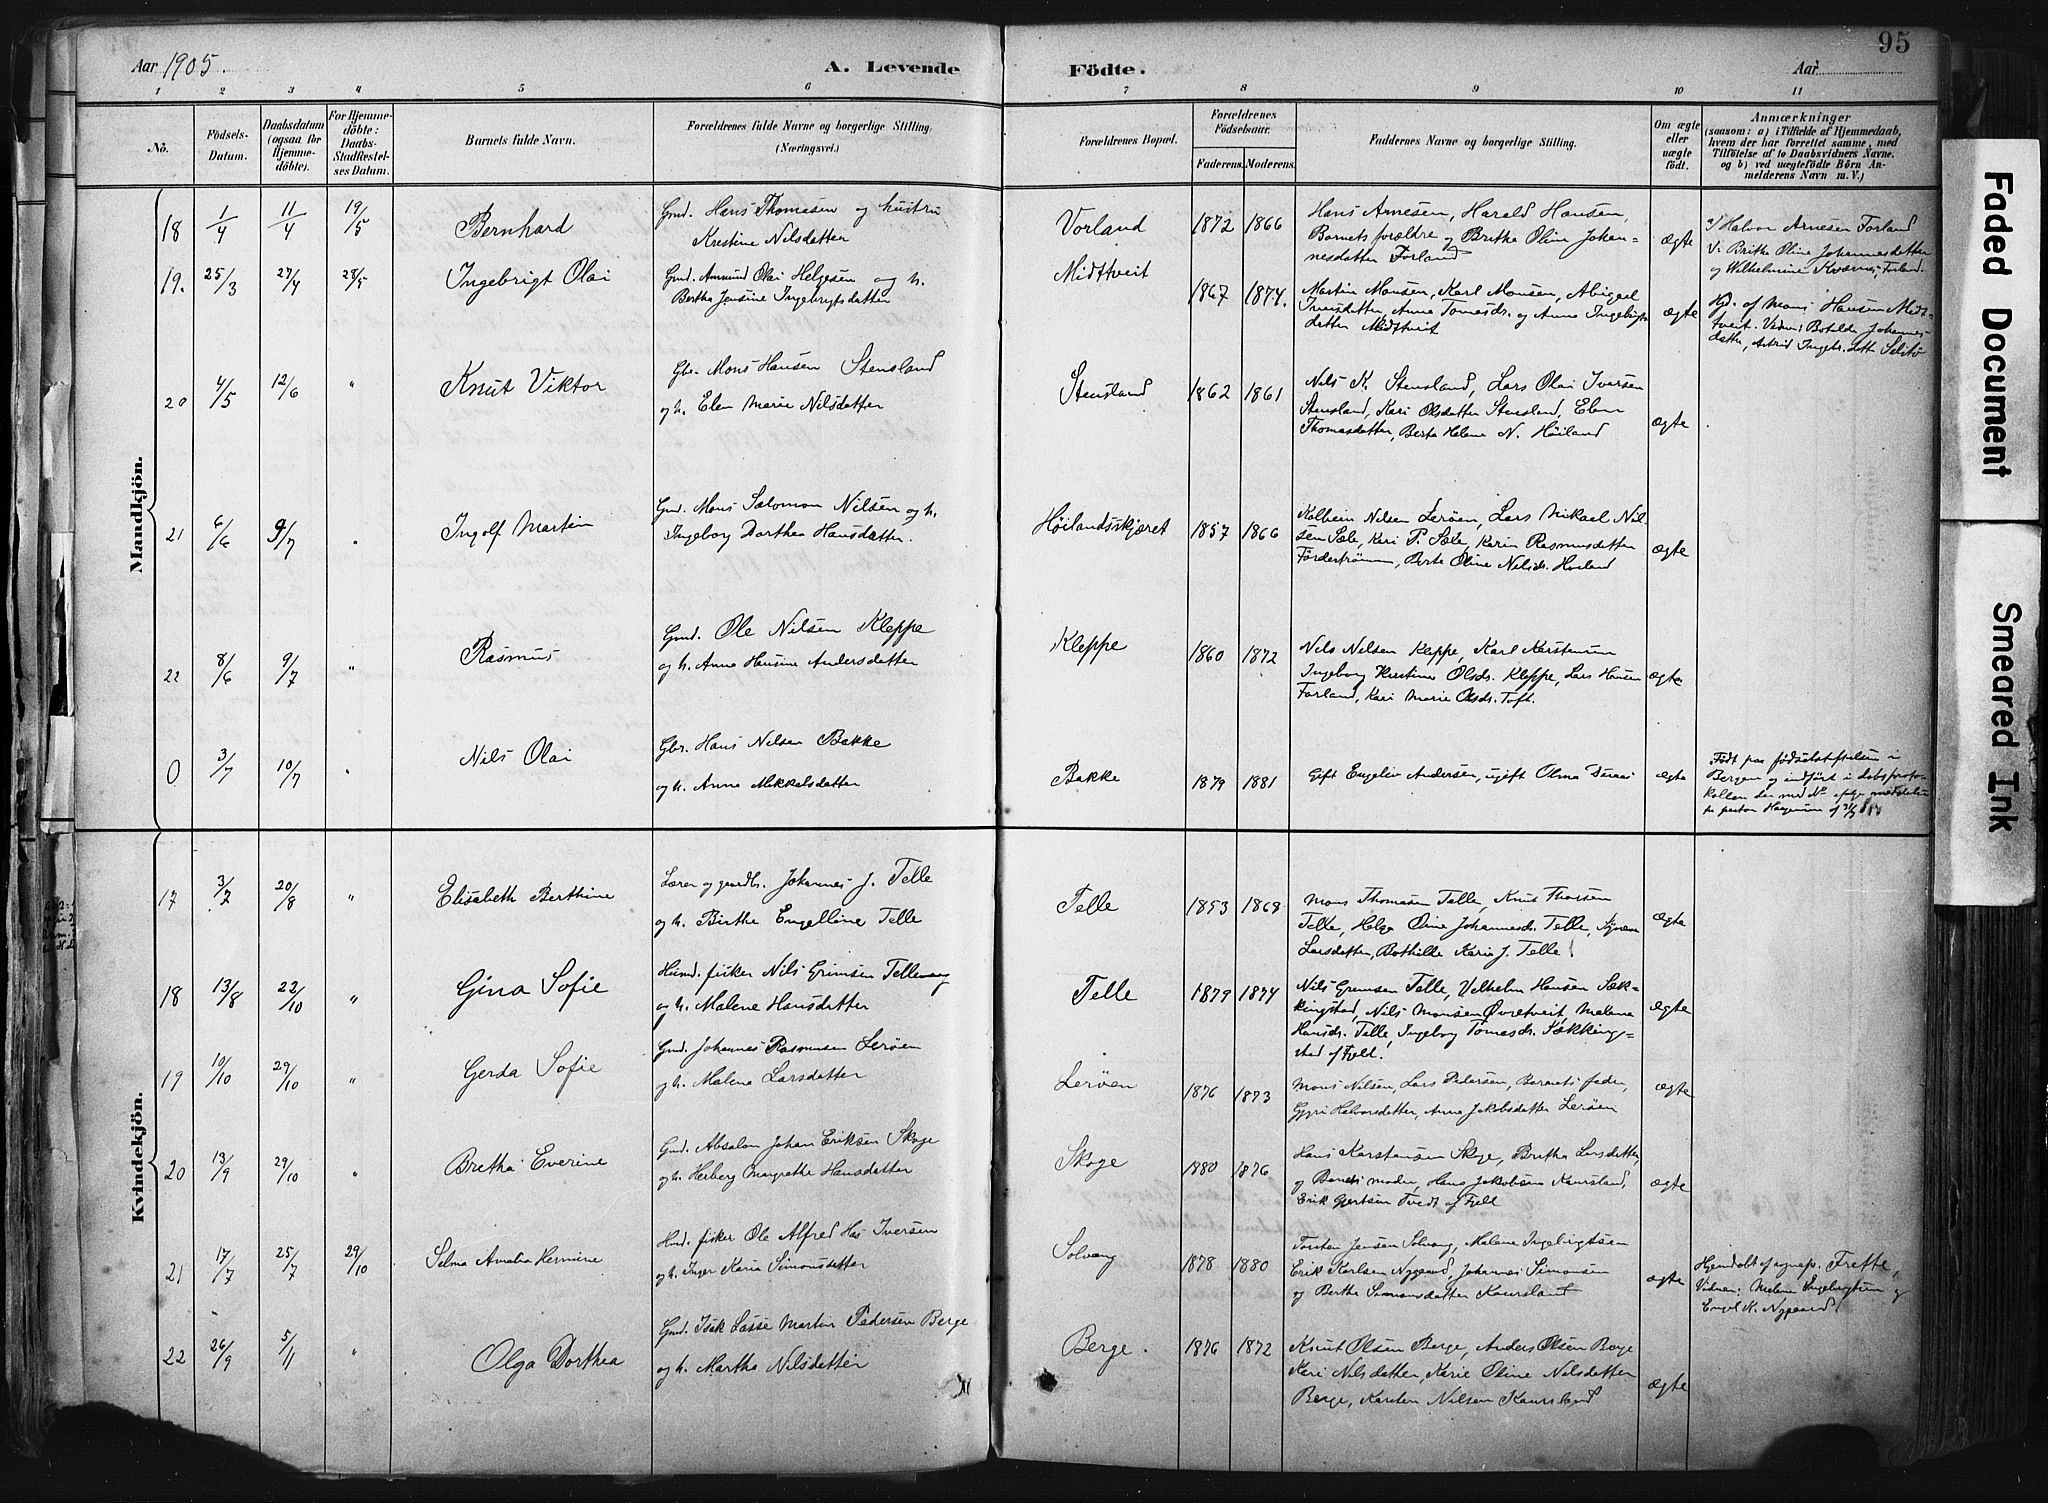 95
Aar 1905.
A. Levende Födte.
Aar
1 2 3 4 5 6 7 8 9 10 11
No.
Födsels-Datum.
Daabsdatum (ogsaa for Hjemmedöbte).
For Hjemmedöbte: Daabs-Stadfæstelses Datum.
Barnets fulde Navn.
Forældrenes fulde Navne og borgerlige Stilling. (Næringsvei.)
Forældrenes Bopæl.
Forældrenes Födselsaar.
Faderens. Moderens.
Faddernes Navne og borgerlige Stilling.
Om ægte eller uægte födt.
Anmærkninger
(saasom: a) i Tilfælde af Hjemmedaab,
hvem der har forrettet samme, med
Tilföielse af to Daabsvidners Navne,
og b) ved uægtefödte Börn Anmelderens Navn m. V.)
Mandkjön.
18 1/4 11/4 19/5 Bernhard
Gmd. Hans Thomasen og hustru
Kristine Nilsdatter
Vorland 1872 1866
Hans Arnesen, Harald Hansen,
Barnets forældre og Britha Olina Johan-
nesdatter Forland
ægte
Halvor Arnesen Forland
V: Britha Oline Johannesdatter
og Wilhelmine Forland.
19. 25/3 27/4 28/5 Ingebrigt Olai
Gmd. Ammund Olai Helgesen og h.
Bertha Jensine Ingebrigtsdatter
Midttveit 1867 1874.
Martin Monsen, Karl Monsen, Abigael
Iversdatter, Anna Tomesds. og Anna Ingebrigts
datter Midttveit
ægte
Hjd. af Mons Hansen Midt-
tveit. Vidner: Botilde Johannes-
datter, Astrid Ingebr.datt.
20 4/5 12/6 " Knut Viktor
Gbr. Mons Hansen Stensland
og h. Elen Marie Nilsdatter
Stensland 1862 1861
Nils K. Stensland, Lars Olai Iversen
Stensland, Kari Olsdatter Stensland, Elen
Thomasdatter, Berta Helene N. Höiland
ægte
21 6/6 9/7 " Ingolf Martin
Gmd. Mons Salomon Nilsen og h.
Ingeborg Dorthea Hansdatter.
Höilandsskjæret 1857 1866
Kolbein Nilsen Leröen, Lars Mikael Nil-
sen Sæle, Kari P. Sæle, Karin Rasmusdatter
Förderströmmen, Berte Oline Nilsds. Hoiland
ægte
22 8/6 9/7 " Rasmus
Gmd. Ole Nilsen Kleppe
og h. Anna Hansine Andersdatter
Kleppe 1860 1872
Nils Nilsen Kleppe, Karl Karstensen
Ingeborg Kristine Olsds. Kleppe, Lars Hansen
Forland, Kari Marie Olsds. Toft.
ægte
0 3/7 10/7 " Nils Olai
Gbr. Hans Nilsen Bakke
og h. Anna Mikkelsdatter
Bakke 1879 1881
Gift Engeliv Andersen, ugift Olma
ægte
Födt paa födselsstiftelsen i
Bergen og indfört i daabsproto-
kollen der med No
Kvindekjön.
17 3/7 20/8 " Elisabeth Berthine
Lærer og gaardb. Johannes J. Telle
og h. Birthe Engelline Telle
Telle 1853 1868
Mons Thomasen Telle, Knut Thorsen
Telle, Helga Oline Johannesds. Telle,
Larsdatter, Bothilde Karie J. Telle
ægte
18 13/8 22/10 " Gina Sofie
Husmd. fisker Nils Grimsen Tellevaag
og h. Malene Hansdatter
Telle 1879 1874
Nils Grimsen Telle, Vilhelm Hansen Sæk-
kingstad, Nils Monsen Övretveit, Malene
Hansds. Telle, Ingeborg Tomasds. Sækking-
stad af Fjeld.
ægte
19 10/10 29/10 " Gerda Sofie
Gmd. Johannes Rasmusen Leröen
og h. Malena Larsdatter
Leröen 1876 1873
Mons Nilsen, Lars Pedersen, Barnets fader,
Gyri Halvorsdatter, Anna Jakobsdatter Leröen
ægte
20 13/9 29/10 " Bretha Everine
Gmd. Absalon Johan Eriksen Skoge
og h. Herborg Margrethe Hansdatter
Skoge 1880 1876
Hans Karstensen Skoge, Britha Larsdatter,
og Barnets moder, Hans Jakobsen Kaursland,
Erik Gjertsen Tveit af Fjeld
ægte
21 17/7 25/7 29/10 Selma Amalia Hermine
Husmd. fisker Ole Alfred Has Iversen
og h. Inger Karia Simonsdatter
Solvang 1878 1880
Torsten Jensen Solvang, Malene Ingebrigtsen
Erik Karlsen Nygaard, Johannes Simonsen
og Bertha Simonsdatter Kaursland
ægte
Hjemdöbt af sognepr. Frette,
Vidner: Malene Ingebrigtsen og
Engel K. Nygaard
22 26/9 5/11 " Olga Dorthea
Gmd. Isak Lasse Martin Pedersen Berge
og h. Martha Nilsdatter
Berge. 1876 1872
Knut Olsen Berge, Anders Olsen Berge
Kari Nilsdatter, Karie Oline Nilsdatter
Berge, Karsten Nilsen Kaursland
ægte
Faded Document
Smeared Ink